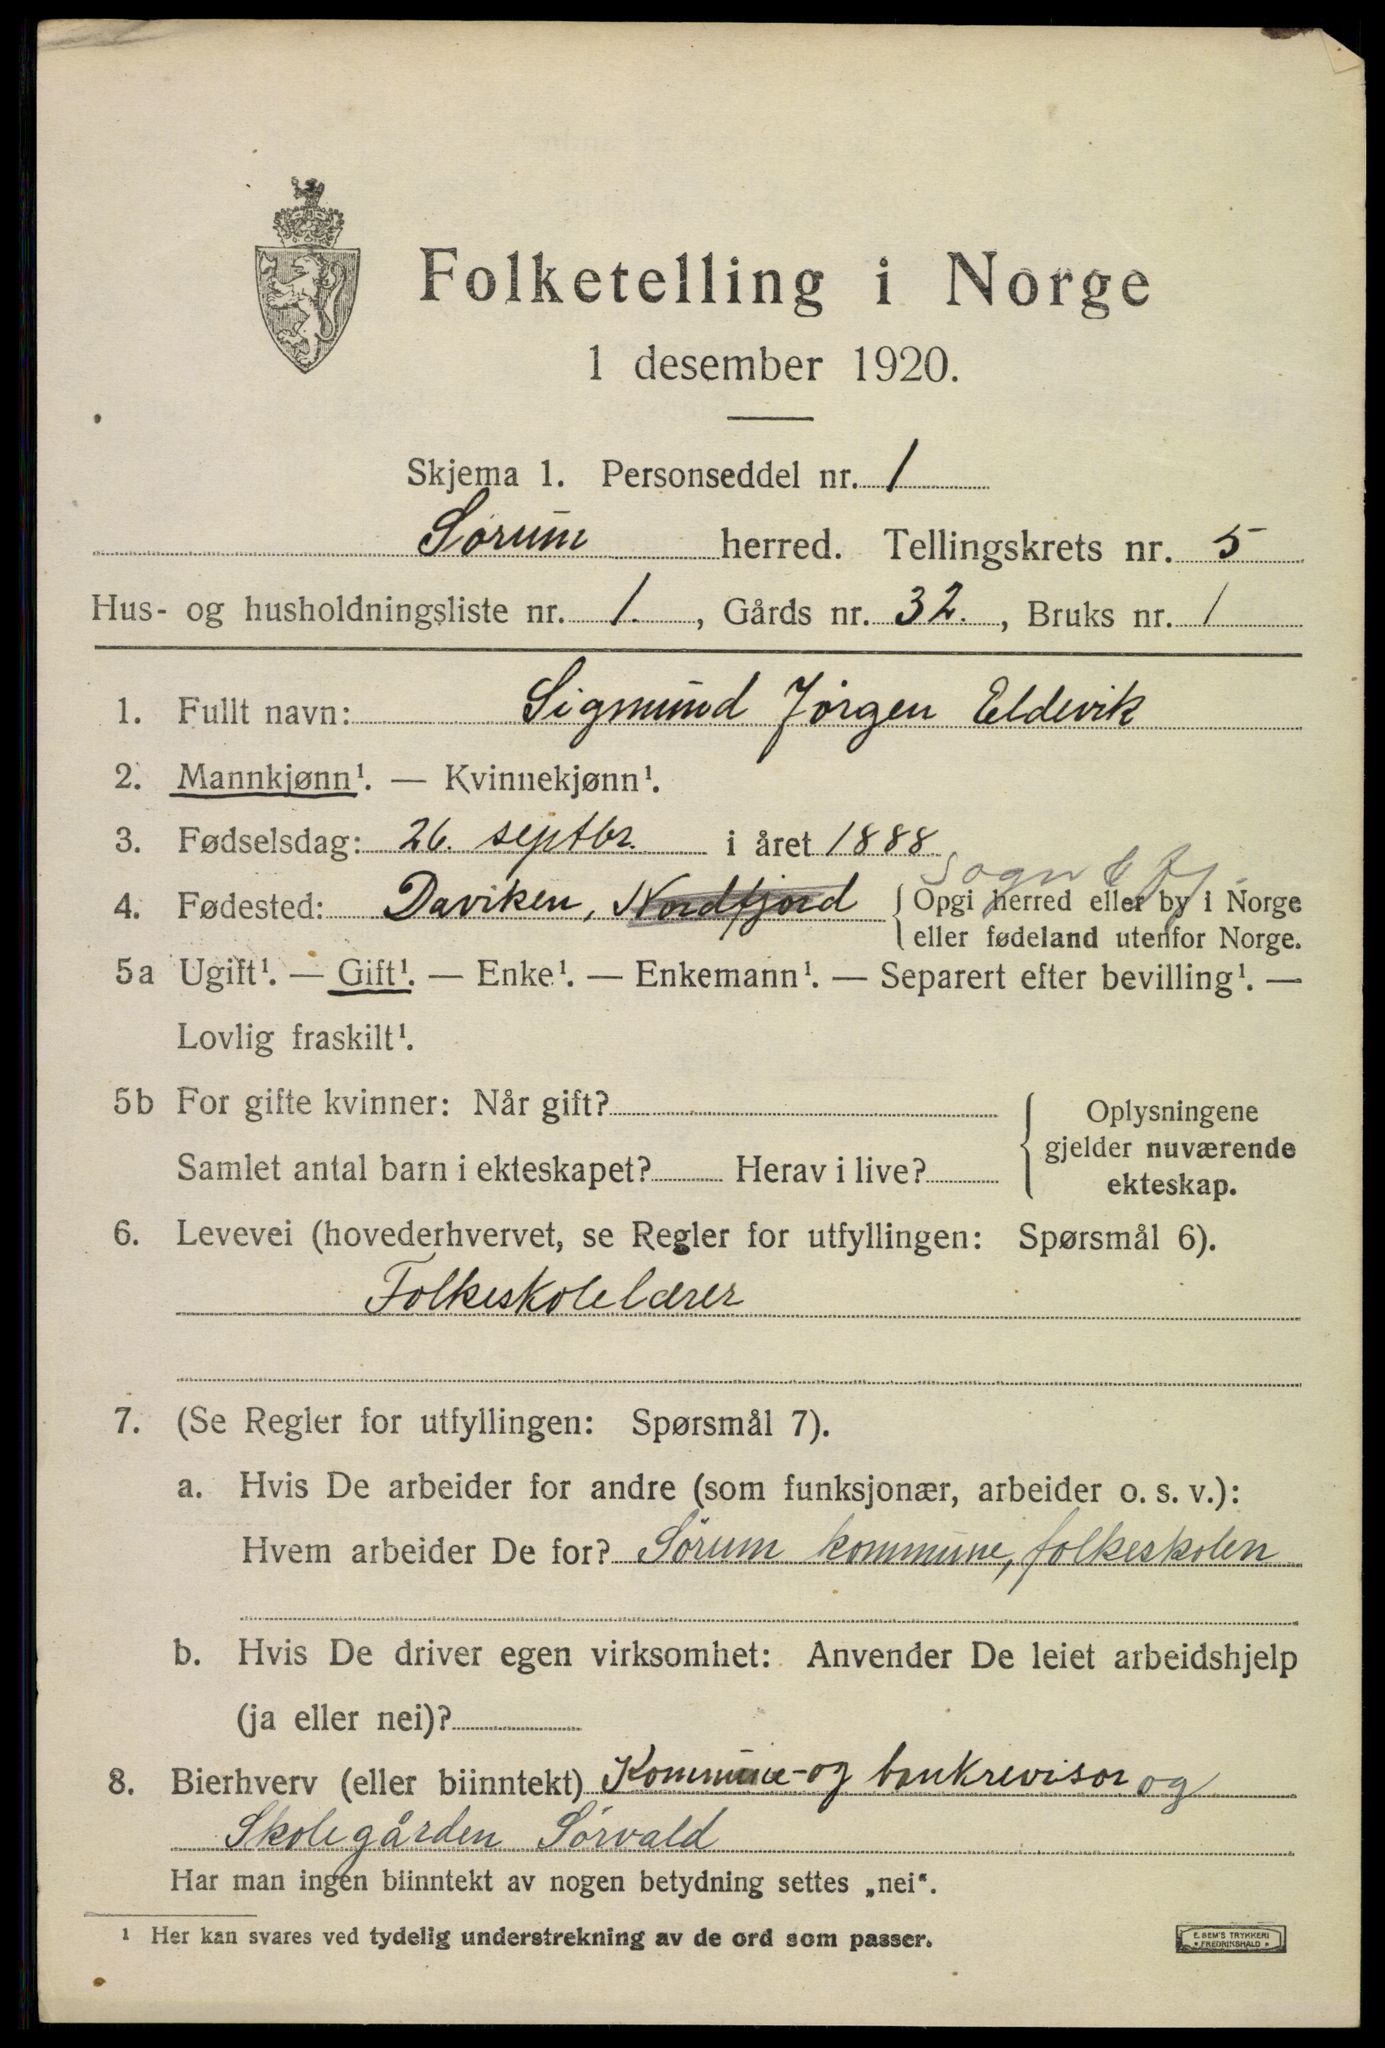 Folketelling i Norge
1 desember 1920.
Skjema 1. Personseddel nr. 1
Sørum herred. Tellingskrets nr. 5
Hus- og husholdningsliste nr. 1. , Gårds nr. 32. , Bruks nr. 1
1. Fullt navn: Sigmund Jørgen Eldevik
2. Mannkjønn¹. — Kvinnekjønn¹.
3. Fødselsdag: 26. septbr. i året 1888
Sogn & Fj.
4. Fødested: Daviken, Nordfjord { Opgi herred eller by i Norge
eller fødeland utenfor Norge.
5a Ugift¹. — Gift¹. — Enke¹. — Enkemann¹. — Separert efter bevilling¹. —
Lovlig fraskilt¹.
5b For gifte kvinner: Når gift?
Samlet antal barn i ekteskapet? Herav i live?
Oplysningene
gjelder nuværende
ekteskap.
6. Levevei (hovederhvervet, se Regler for utfyllingen: Spørsmål 6).
Folkeskolelærer
7. (Se Regler for utfyllingen: Spørsmål 7).
a. Hvis De arbeider for andre (som funksjonær, arbeider o. s. v.):
Hvem arbeider De for? Sørum kommune, folkeskolen
b. Hvis De driver egen virksomhet: Anvender De leiet arbeidshjelp
(ja eller nei)?
8. Bierhverv (eller biinntekt) Kommune- og bankrevisor og
Skolegården Sørvald
Har man ingen biinntekt av nogen betydning settes „nei“.
¹ Her kan svares ved tydelig understrekning av de ord som passer.
E. SEM'S TRYKKERI
FREDRIKSHALD